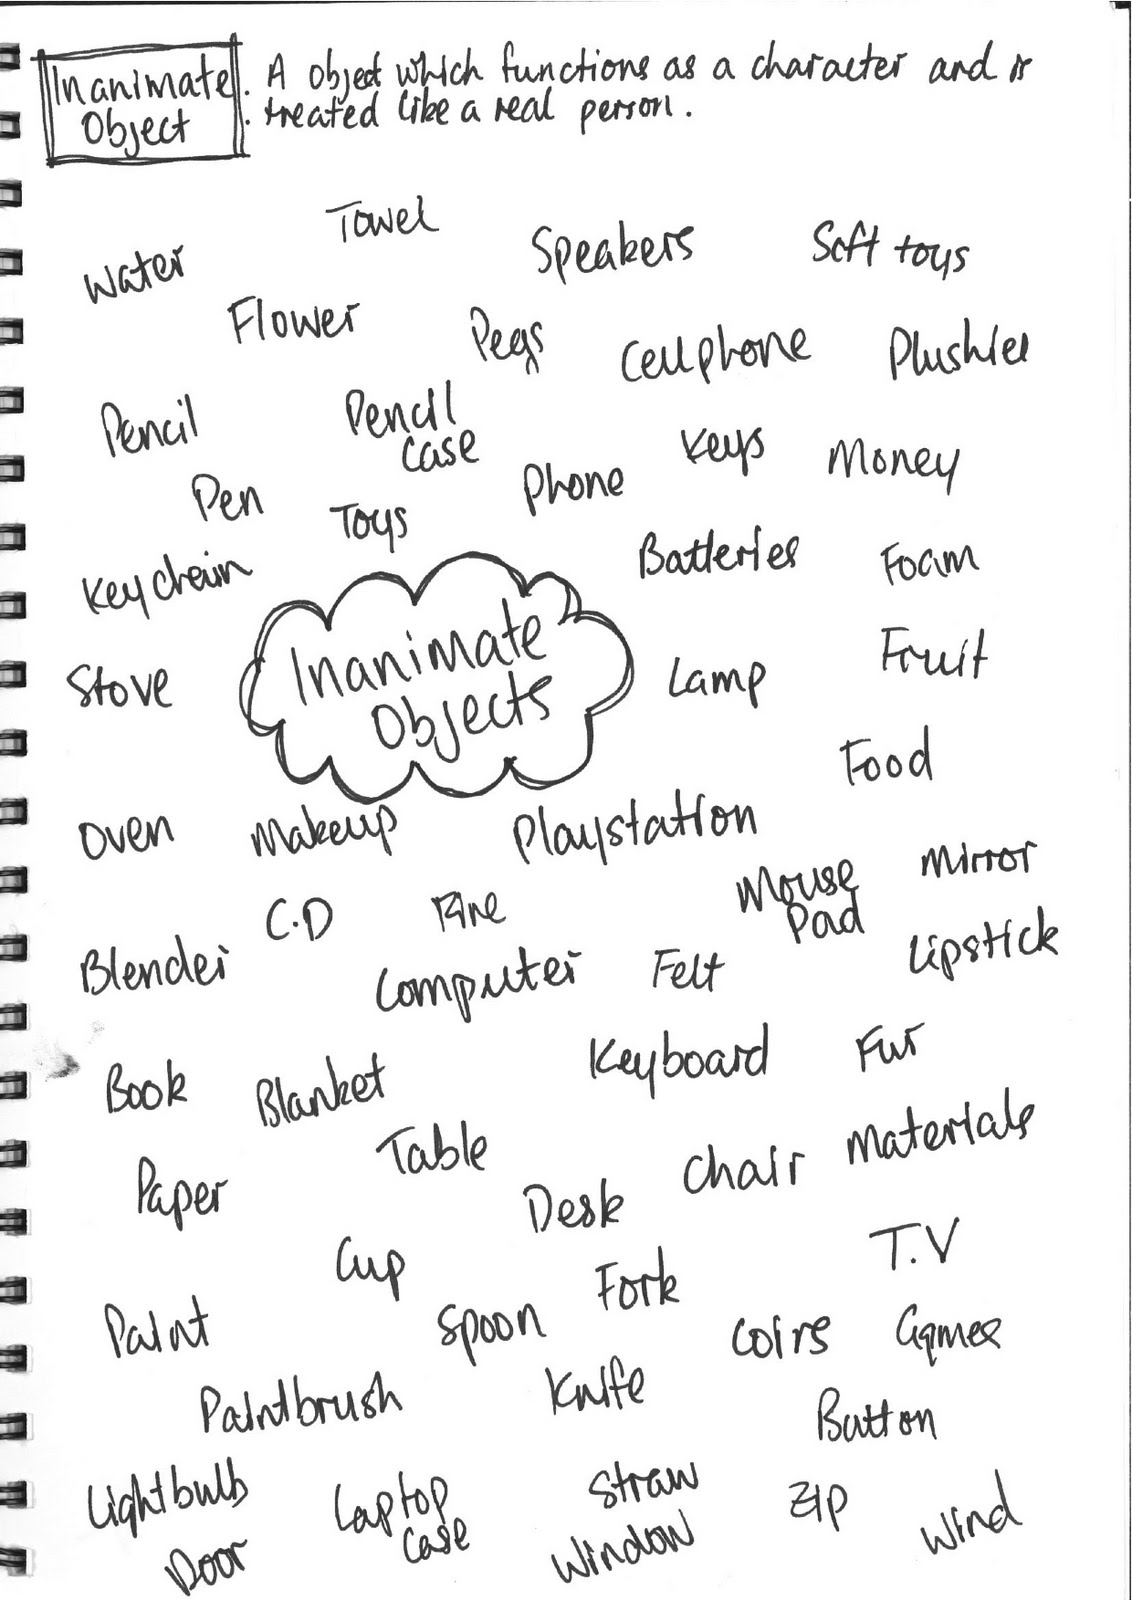 Inanimate Object
. A object which functions as a character and is
. treated like a real person.
Towel
Water
Speakers
Soft toys
Flower
Pegs
Cellphone
Plushies
Pencil
Pencil
case
Keys
Money
Pen
Toys
Phone
Keychain
Batteries
Foam
Inanimate
Objects
Stove
Lamp
Fruit
Food
Oven
Makeup
Playstation
Mouse
Pad
Mirror
C.D
Blender
Computer
Felt
Lipstick
Book
Blanket
Keyboard
Fur
Table
Chair
Materials
Paper
Desk
Cup
Fork
T.V
Paint
Spoon
Coins
Games
Paintbrush
Knife
Button
Lightbulb
Laptop
Case
Straw
Zip
Door
Window
Wind